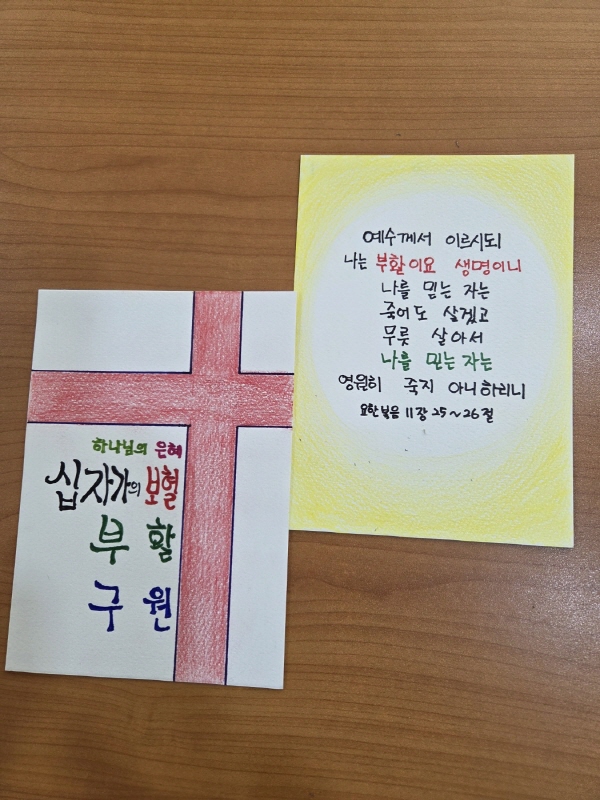 하나님의 은혜
십자가의 보혈
부활
구원
예수께서 이르시되
나는 부활이요 생명이니
나를 믿는 자는
죽어도 살겠고
무릇 살아서
나를 믿는 자는
영원히 죽지 아니하리니
요한복음 11장 25~26절